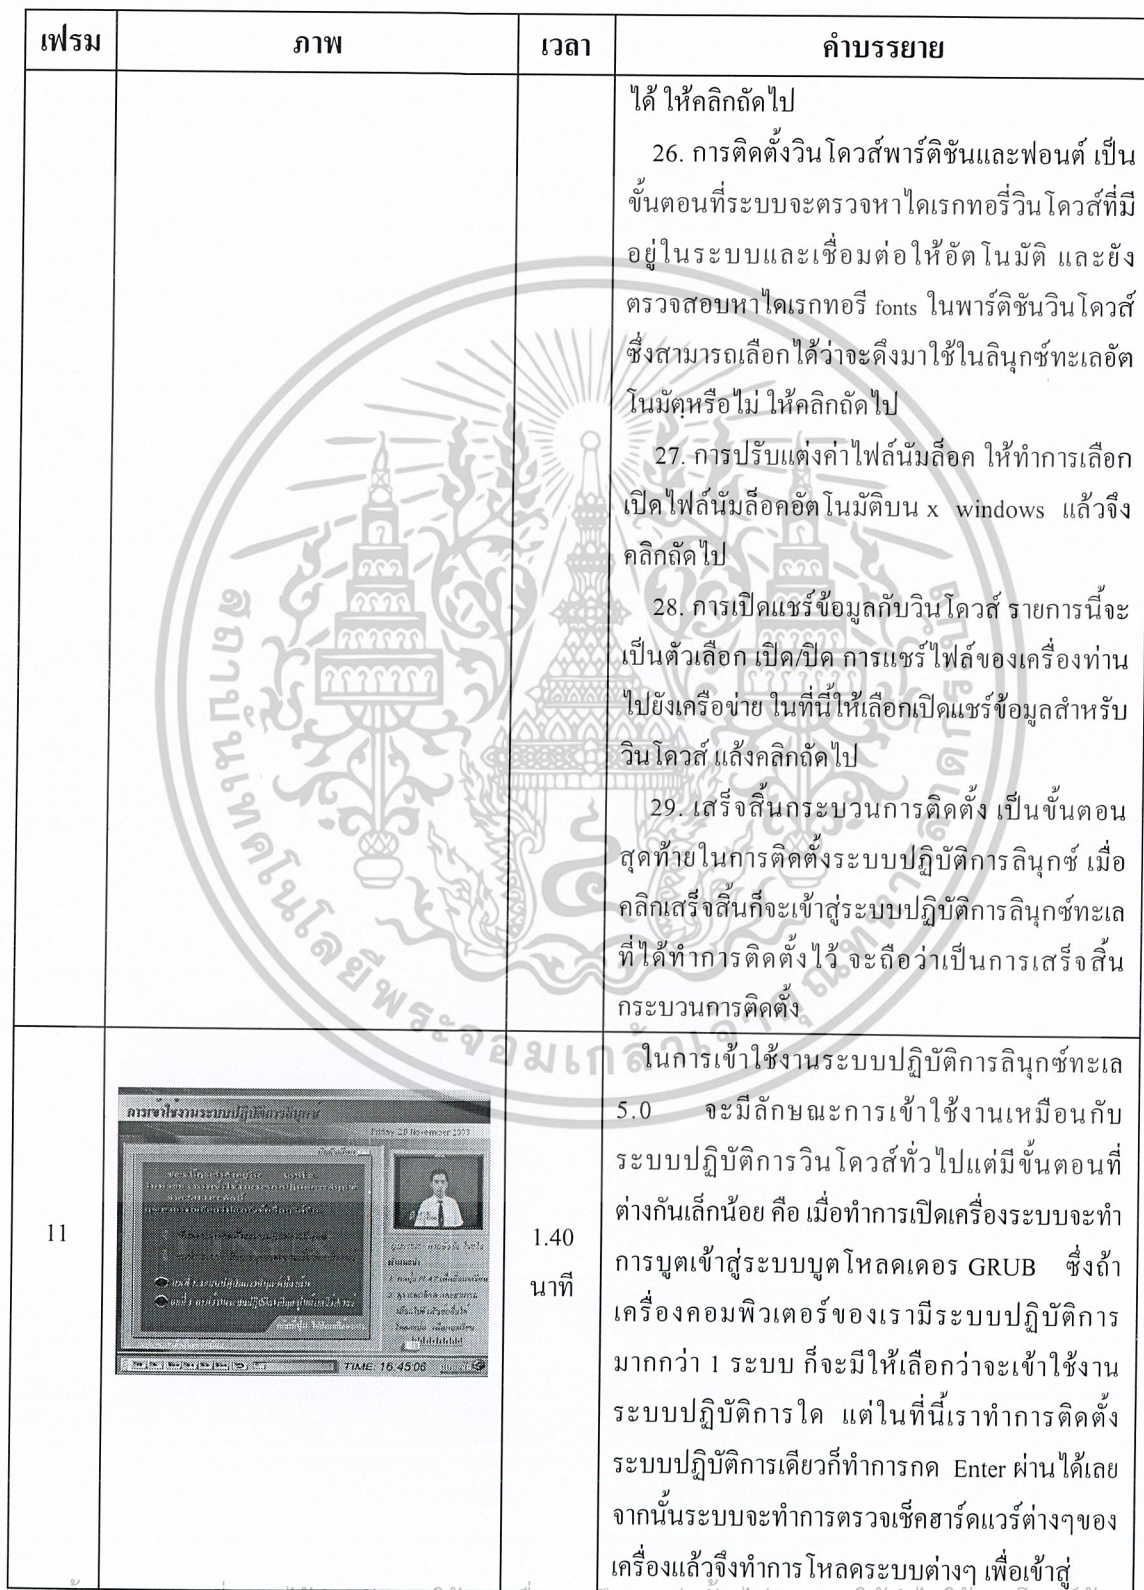 เฟรม ภาพ เวลา คำบรรยาย
ได้ ให้คลิกถัดไป
26. การติดตั้งวินโดวส์พาร์ติชันและฟอนต์ เป็น
ขั้นตอนที่ระบบจะตรวจหาไดเรกทอรี่วินโดวส์ที่มี
อยู่ในระบบและเชื่อมต่อให้อัตโนมัติ และยัง
ตรวจสอบหาไดเรกทอรี fonts ในพาร์ติชันวินโดวส์
ซึ่งสามารถเลือกได้ว่าจะดึงมาใช้ในลินุกซ์ทะเลอัต
โนมัตุหรือไม่ ให้คลิกถัดไป
27. การปรับแต่งค่าไฟล์นัมล็อค ให้ทำการเลือก
เปิดไฟล์นัมล็อคอัตโนมัติบน x windows แล้วจึง
คลิกถัดไป
28. การเปิดแชร์ข้อมูลกับวินโดวส์ รายการนี้จะ
เป็นตัวเลือก เปิด/ปิด การแชร์ไฟล์ของเครื่องท่าน
ไปยังเครือข่าย ในที่นี้ให้เลือกเปิดแชร์ข้อมูลสำหรับ
วินโดวส์ แล้งคลิกถัดไป
29. เสร็จสิ้นกระบวนการติดตั้ง เป็นขั้นตอน
สุดท้ายในการติดตั้งระบบปฏิบัติการลินุกซ์ เมื่อ
คลิกเสร็จสิ้นก็จะเข้าสู่ระบบปฏิบัติการลินุกซ์ทะเล
ที่ได้ทำการติดตั้งไว้ จะถือว่าเป็นการเสร็จสิ้น
กระบวนการติดตั้ง
สถาบันเทคโนโลยีพระจอมเกล้าเจ้าคุณทหารลาดกระบัง
11
การเข้าใช้งานระบบปฏิบัติการลินุกซ์
Friday 28 November 2003
TIME: 16:45:06
1.40
นาที
ในการเข้าใช้งานระบบปฏิบัติการลินุกซ์ทะเล
5.0 จะมีลักษณะการเข้าใช้งานเหมือนกับ
ระบบปฏิบัติการวินโดวส์ทั่วไปแต่มีขั้นตอนที่
ต่างกันเล็กน้อย คือ เมื่อทำการเปิดเครื่องระบบจะทำ
การบูตเข้าสู่ระบบบูตโหลดเดอร GRUB ซึ่งถ้า
เครื่องคอมพิวเตอร์ของเรามีระบบปฏิบัติการ
มากกว่า 1 ระบบ ก็จะมีให้เลือกว่าจะเข้าใช้งาน
ระบบปฏิบัติการใด แต่ในที่นี้เราทำการติดตั้ง
ระบบปฏิบัติการเดียวก็ทำการกด Enter ผ่านได้เลย
จากนั้นระบบจะทำการตรวจเช็คฮาร์ดแวร์ต่างๆของ
เครื่องแล้วจึงทำการโหลดระบบต่างๆ เพื่อเข้าสู่